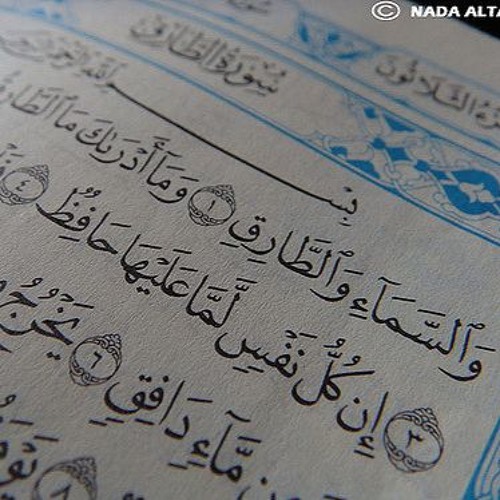 © NADA ALTA
سُورَةُ الطَّارِقِ
بِسْمِ اللَّهِ الرَّحْمَٰنِ
وَالسَّمَاءِ وَالطَّارِقِ ١ وَمَا أَدْرَاكَ مَا الطَّارِقُ
٣ إِن كُلُّ نَفْسٍ لَّمَّا عَلَيْهَا حَافِظٌ ٤
مَّاءٍ دَافِقٍ ٦ يَخْرُجُ
٨